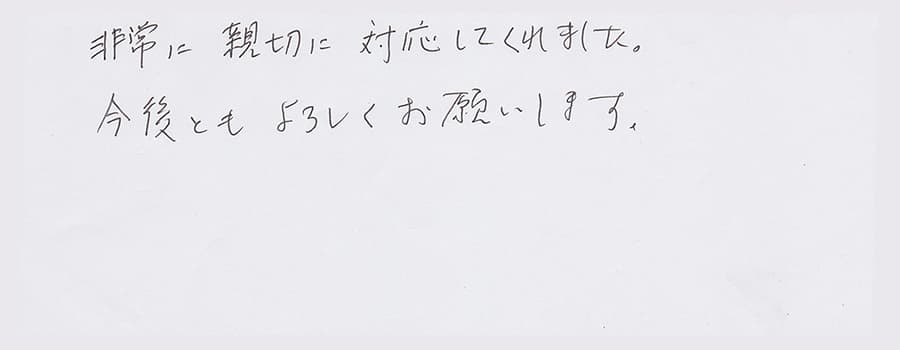 非常に親切に対応してくれました。
今後ともよろしくお願いします.